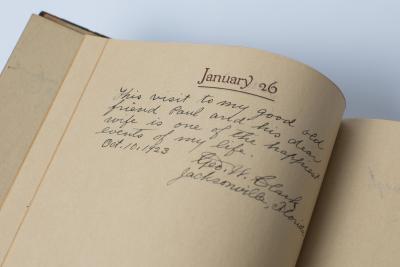 January 26
This visit to my good old
friend Paul and his dear
wife is one of the happiest
events of my life.
Oct. 10. 1923
Geo. W. Clark
Jacksonville, Florida